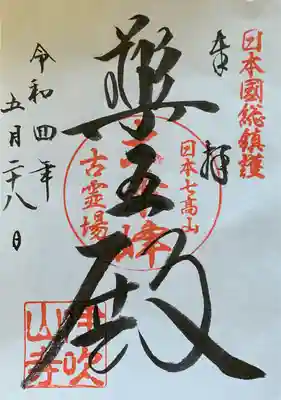 日本國総鎮護
奉拝
日本七高山
藥王殿
峰
古霊場
令和四年
五月二十八日
伊吹
山寺